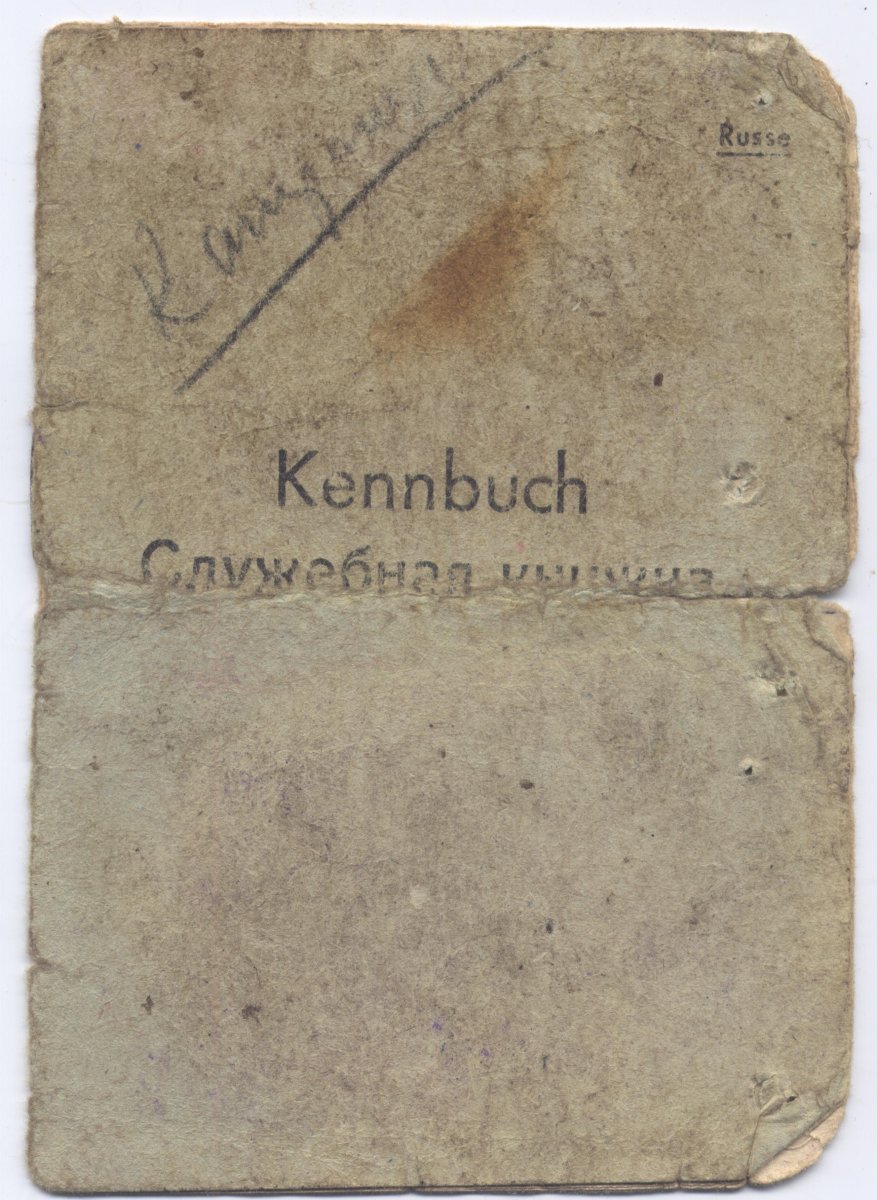 Russe
Kennbuch
Служебная книжка